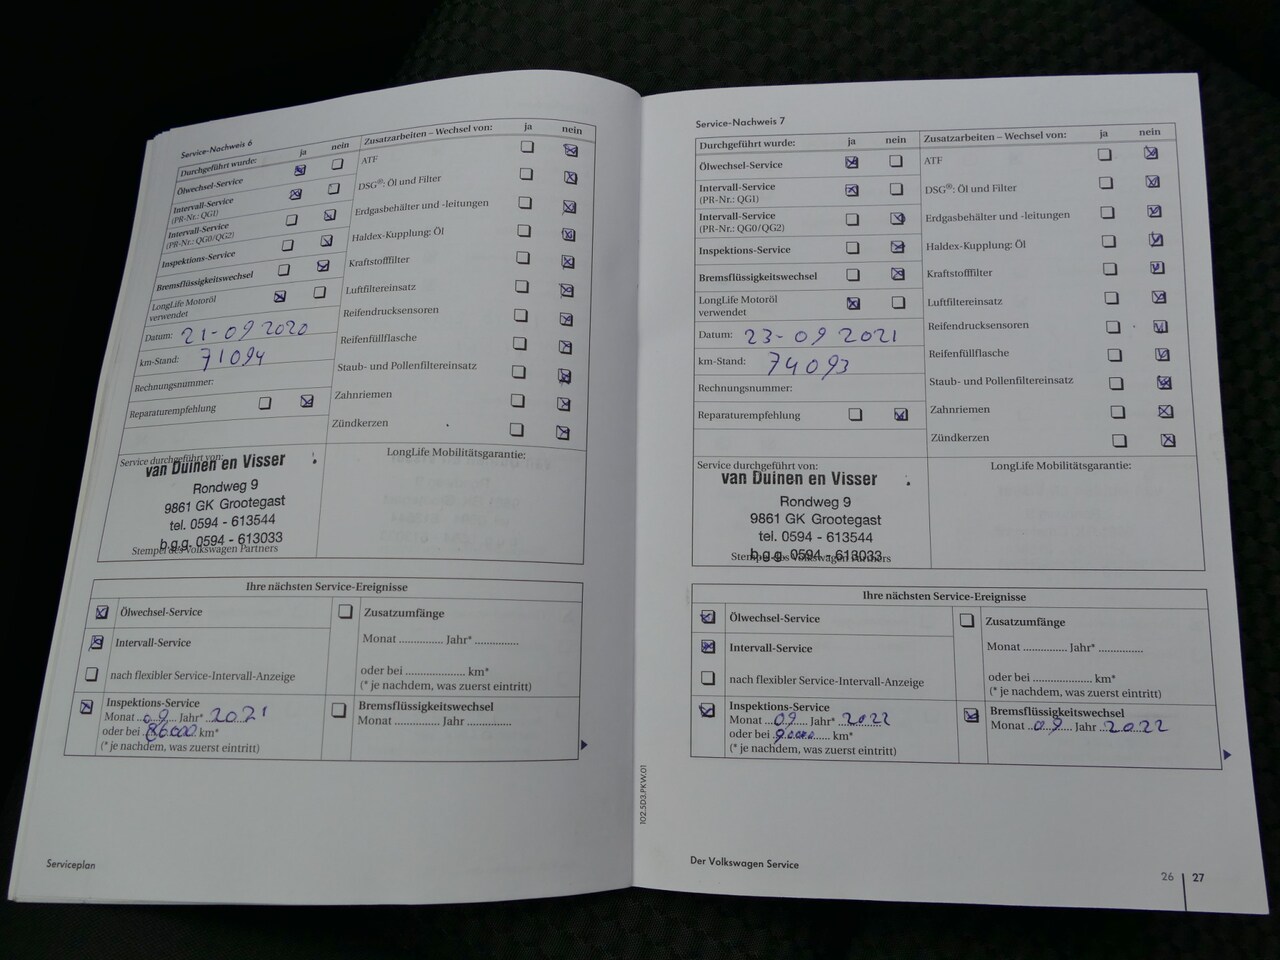 Service-Nachweis 6
Durchgeführt wurde: ja nein
Ölwechsel-Service
Intervall-Service
(PR-Nr.: QG1)
Intervall-Service
(PR-Nr.: QG0/QG2)
Inspektions-Service
Bremsflüssigkeitswechsel
LongLife Motoröl
verwendet
Datum: 21-09 2020
km-Stand: 71094
Rechnungsnummer:
Reparaturempfehlung
Zusatzarbeiten – Wechsel von: ja nein
ATF
DSG®: Öl und Filter
Erdgasbehälter und -leitungen
Haldex-Kupplung: Öl
Kraftstofffilter
Luftfiltereinsatz
Reifendrucksensoren
Reifenfüllflasche
Staub- und Pollenfiltereinsatz
Zahnriemen
Zündkerzen
Service durchgeführt von:
van Duinen en Visser
Rondweg 9
9861 GK Grootegast
tel. 0594 - 613544
b.g.g. 0594 - 613033
Stempel des Volkswagen Partners
LongLife Mobilitätsgarantie:
Ihre nächsten Service-Ereignisse
Ölwechsel-Service
Intervall-Service
nach flexibler Service-Intervall-Anzeige
Zusatzumfänge
Monat ............... Jahr* ...............
oder bei ..................... km*
(* je nachdem, was zuerst eintritt)
Inspektions-Service
Monat ..09.. Jahr* 2021
oder bei 86000 km*
(* je nachdem, was zuerst eintritt)
Bremsflüssigkeitswechsel
Monat ............... Jahr ...............
Serviceplan
102.5D3.PKW.01
Service-Nachweis 7
Durchgeführt wurde: ja nein
Ölwechsel-Service
Intervall-Service
(PR-Nr.: QG1)
Intervall-Service
(PR-Nr.: QG0/QG2)
Inspektions-Service
Bremsflüssigkeitswechsel
LongLife Motoröl
verwendet
Datum: 23-09 2021
km-Stand: 74093
Rechnungsnummer:
Reparaturempfehlung
Zusatzarbeiten – Wechsel von: ja nein
ATF
DSG®: Öl und Filter
Erdgasbehälter und -leitungen
Haldex-Kupplung: Öl
Kraftstofffilter
Luftfiltereinsatz
Reifendrucksensoren
Reifenfüllflasche
Staub- und Pollenfiltereinsatz
Zahnriemen
Zündkerzen
Service durchgeführt von:
van Duinen en Visser
Rondweg 9
9861 GK Grootegast
tel. 0594 - 613544
b.g.g. 0594 - 613033
Stempel des Volkswagen Partners
LongLife Mobilitätsgarantie:
Ihre nächsten Service-Ereignisse
Ölwechsel-Service
Intervall-Service
nach flexibler Service-Intervall-Anzeige
Zusatzumfänge
Monat ............... Jahr* ...............
oder bei ..................... km*
(* je nachdem, was zuerst eintritt)
Inspektions-Service
Monat ..09.. Jahr* 2022
oder bei 90000 km*
(* je nachdem, was zuerst eintritt)
Bremsflüssigkeitswechsel
Monat ..09.. Jahr 2022
Der Volkswagen Service
26 27